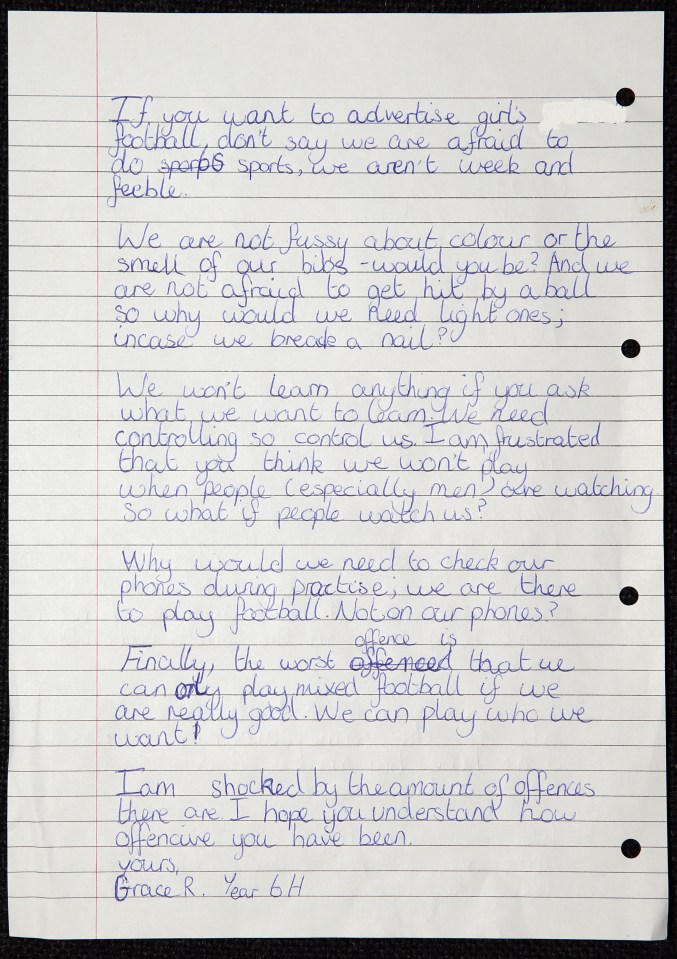 If you want to advertise girl's
football, don't say we are afraid to
do sports, we aren't week and
feeble.
We are not fussy about colour or the
smell of our bibs - would you be? And we
are not afraid to get hit by a ball
so why would we need light ones;
incase we break a nail?
We won't learn anything if you ask
what we want to learn. We need
controlling so control us. I am frustrated
that you think we won't play
when people (especially men) are watching.
So what if people watch us?
Why would we need to check our
phones during practise; we are there
to play football. Not on our phones?
offence is
Finally, the worst that we
can only play mixed football if we
are really good. We can play who we
want!
I am shocked by the amount of offences
there are. I hope you understand how
offencive you have been.
yours,
Grace R. Year 6H